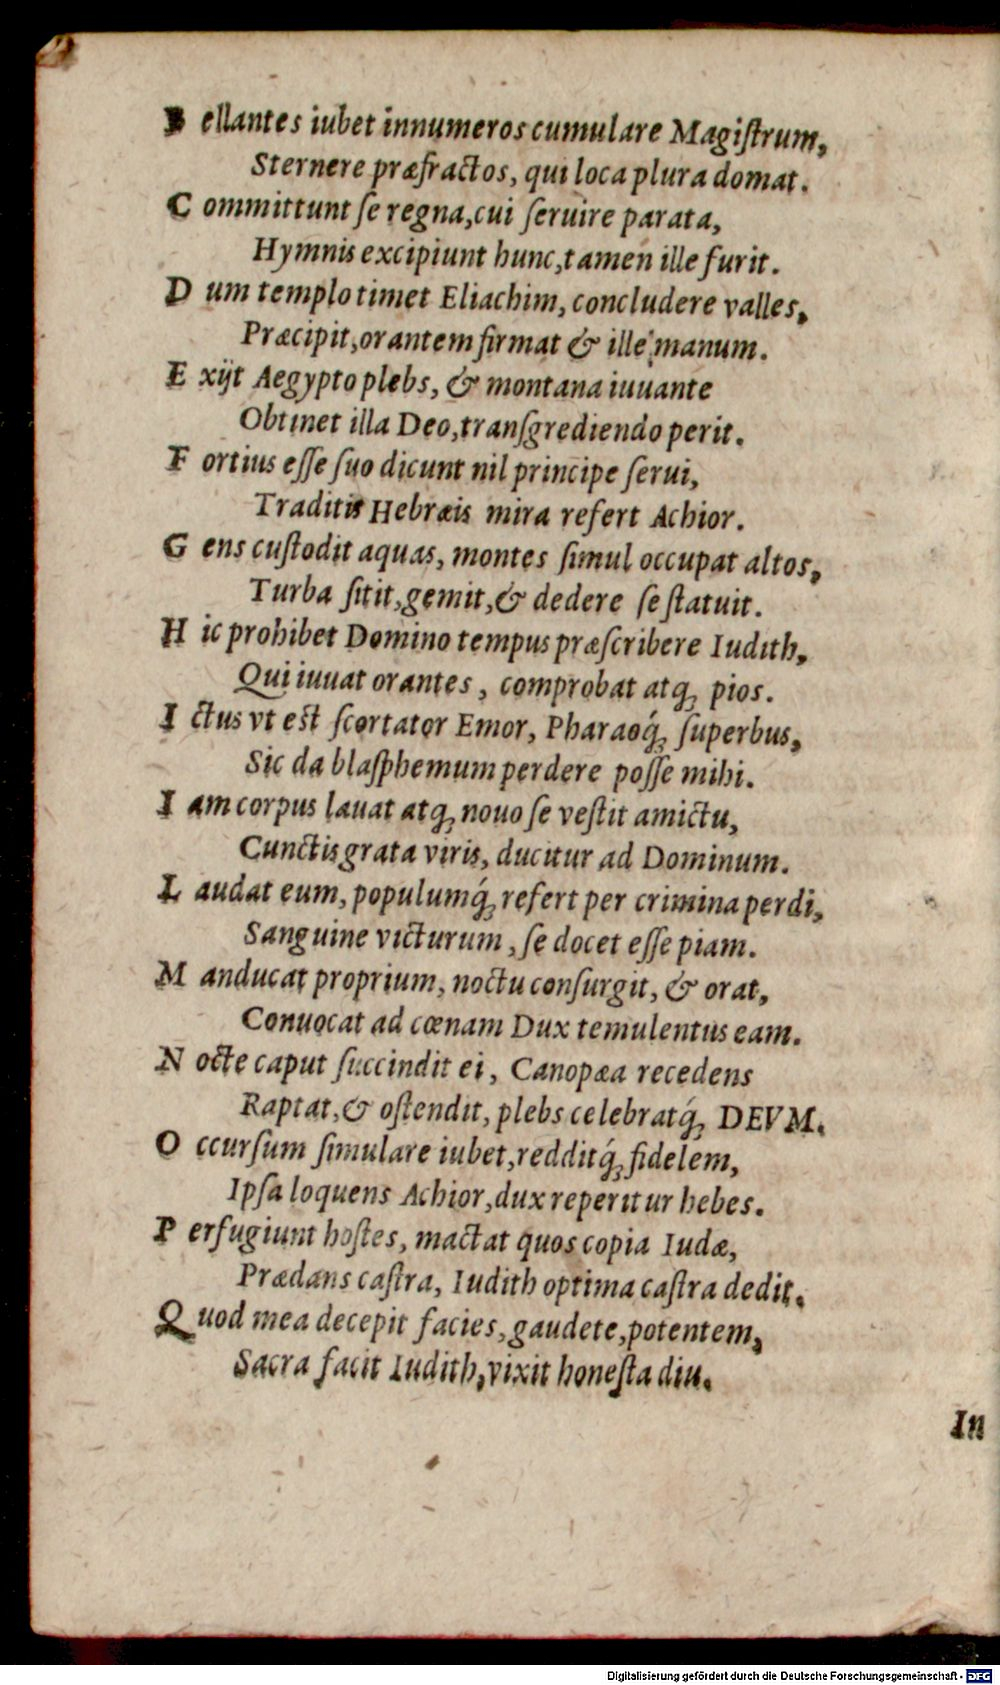 B ellantes iubet innumeros cumulare Magiſtrum,
Sternere præfractos, qui loca plura domat.
C ommittunt ſe regna, cui ſeruire parata,
Hymnis excipiunt hunc, tamen ille furit.
D um templo timet Eliachim, concludere valles,
Præcipit, orantem firmat & ille manum.
E xijt Aegypto plebs, & montana iuuante
Obtinet illa Deo, tranſgrediendo perit.
F ortius eſſe ſuo dicunt nil principe ſerui,
Traditis Hebræis mira refert Achior.
G ens cuſtodit aquas, montes ſimul occupat altos,
Turba ſitit, gemit, & dedere ſe ſtatuit.
H ic prohibet Domino tempus præſcribere Iudith,
Qui iuuat orantes, comprobat atq́; pios.
I ctus vt eſt ſcortator Emor, Pharaoq́; ſuperbus,
Sic da blaſphemum perdere poſſe mihi.
I am corpus lauat atq; nouo ſe veſtit amictu,
Cunctis grata viris, ducitur ad Dominum.
L audat eum, populumq́; refert per crimina perdi,
Sanguine victurum, ſe docet eſſe piam.
M anducat proprium, noctu conſurgit, & orat,
Conuocat ad cœnam Dux temulentus eam.
N octe caput ſuccindit ei, Canopæa recedens
Raptat, & oſtendit, plebs celebratq́; DEVM.
O ccurſum ſimulare iubet, redditq́; fidelem,
Ipſa loquens Achior, dux reperitur hebes.
P erfugiunt hoſtes, mactat quos copia Iudæ,
Prædans caſtra, Iudith optima caſtra dedit.
Q uod mea decepit facies, gaudete, potentem,
Sacra facit Iudith, vixit honeſta diu.
In
Digitalisierung gefördert durch die Deutsche Forschungsgemeinschaft - DFG